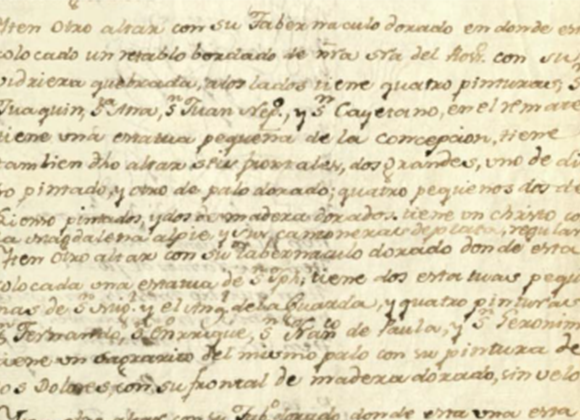 Iten Otro altar con su Tabernaculo dorado en donde est
olocado un retablo bordado de nra Sra del Ros.º con su
vidriera quebrada, a los lados tiene quatro pinturas, S.
Juaquin, S.ta Ana, S.n Juan Nep.º, y S.n Cayetano, en el remate
tiene una estatua pequeña de la concepcion, tiene
tambien dho altar seis frontales, dos grandes, uno de di
ho pintado, y otro de palo dorado; quatro pequeños dos de
lienso pintados, y dos de madera dorados. tiene un christo co
la Magdalena al pie y sus cantoneras de plata, regular
Iten Otro altar con su Tabernaculo dorado donde esta
olocada una estatua de S.n Jph; tiene dos estatuas pequ
nas de S.n Mig.l y el Ang.l de la Guarda, y quatro pinturas
S.n Fernando, S.n Enrrique, S.n Fran.co de Paula, y S.n Geronim
tiene un sagrarito del mismo palo con su pintura de
os Dolores, con su frontal de madera dorado, sin velo
otro altar con su Tab.º dorado donde esta una esta